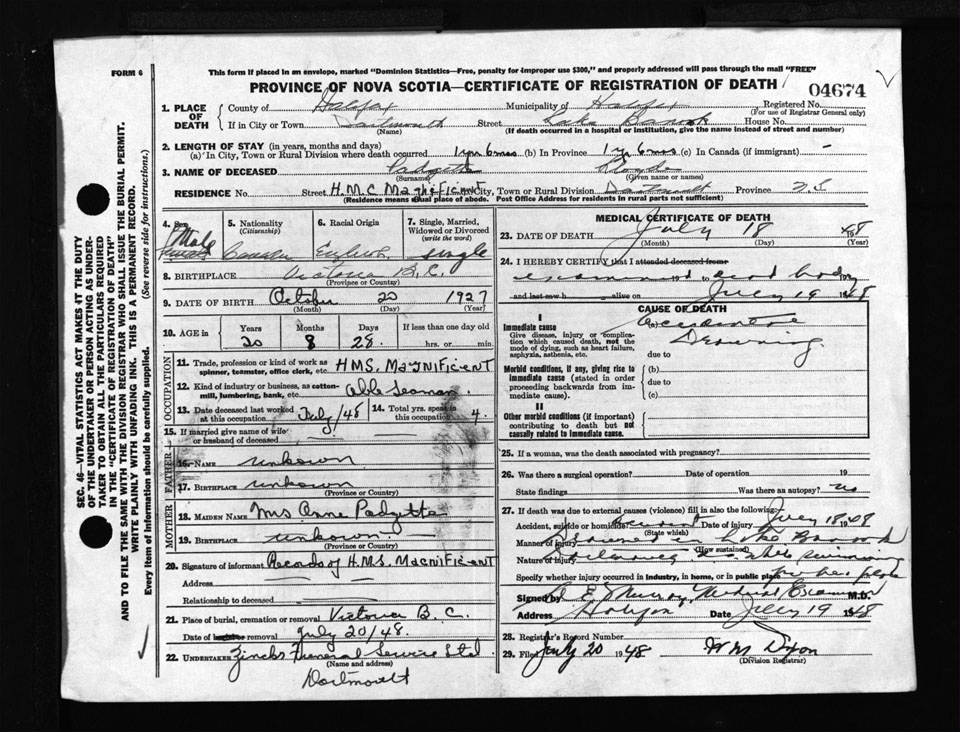 FORM 6
This form if placed in an envelope, marked "Dominion Statistics—Free, penalty for improper use $300," and properly addressed will pass through the mail "FREE"
PROVINCE OF NOVA SCOTIA—CERTIFICATE OF REGISTRATION OF DEATH
04674
1. PLACE OF DEATH
County of Halifax Municipality of Halifax Registered No.
(For use of Registrar General only)
If in City or Town Dartmouth Street Lake Banook House No.
(Name) (If death occurred in a hospital or institution, give the name instead of street and number)
2. LENGTH OF STAY (in years, months and days)
(a) In City, Town or Rural Division where death occurred 1 yr 6 mos (b) In Province 1 yr 6 mos (c) In Canada (if immigrant) —
3. NAME OF DECEASED Padgette
(Surname) (Given name or names)
RESIDENCE No. Street H.M.C Magnificent City, Town or Rural Division Dartmouth Province N.S
(Residence means usual place of abode. Post Office Address for residents in rural parts not sufficient)
4. Sex Male Female
5. Nationality (Citizenship) Canada
6. Racial Origin English
7. Single, Married, Widowed or Divorced (write the word) single
8. BIRTHPLACE Victoria B.C.
(Province or Country)
9. DATE OF BIRTH October 20 1927
(Month) (Day) (Year)
10. AGE in Years Months Days If less than one day old
20 8 28 hrs. or min.
OCCUPATION
11. Trade, profession or kind of work as spinner, teamster, office clerk, etc. HMS. Magnificent
12. Kind of industry or business, as cotton-mill, lumbering, bank, etc. Able Seaman
13. Date deceased last worked at this occupation July/48 14. Total yrs. spent in this occupation 4.
15. If married give name of wife or husband of deceased
FATHER
16. NAME unknown
17. BIRTHPLACE unknown
(Province or Country)
MOTHER
18. MAIDEN NAME Mrs Anne Padgette
19. BIRTHPLACE unknown
(Province or Country)
20. Signature of informant Records of H.M.S. Magnificent
Address
Relationship to deceased
21. Place of burial, cremation or removal Victoria B.C.
Date of burial or removal July 20/48.
22. UNDERTAKER Zincks Funeral Service Ltd.
(Name and address)
Dartmouth
MEDICAL CERTIFICATE OF DEATH
23. DATE OF DEATH July 18 1948
(Month) (Day) (Year)
24. I HEREBY CERTIFY that I attended deceased from
examined dead body
and last saw h alive on July 19 1948
CAUSE OF DEATH
I
Immediate cause (a) Accidental
Give disease, injury or complication which caused death, not the mode of dying, such as heart failure, asphyxia, asthenia, etc.
Drowning
due to
Morbid conditions, if any, giving rise to immediate cause (stated in order proceeding backwards from immediate cause).
(b)
due to
(c)
II
Other morbid conditions (if important) contributing to death but not causally related to immediate cause.
25. If a woman, was the death associated with pregnancy?
26. Was there a surgical operation? Date of operation 19
State findings Was there an autopsy? no
27. If death was due to external causes (violence) fill in also the following:
Accident, suicide or homicide Accident Date of injury July 18 1948
(State which)
Manner of injury Drowned in Lake Banook
(How sustained)
Nature of injury Drowning while swimming
Specify whether injury occurred in industry, in home, or in public place public place
Signed by Murray Medical Examiner M.D.
Address Halifax Date July 19 1948
28. Registrar's Record Number
29. Filed July 20 1948 W M Dixon
(Division Registrar)
SEC. 46—VITAL STATISTICS ACT MAKES IT THE DUTY OF THE UNDERTAKER OR PERSON ACTING AS UNDERTAKER TO OBTAIN ALL THE PARTICULARS REQUIRED IN THE "CERTIFICATE OF REGISTRATION OF DEATH" AND TO FILE THE SAME WITH THE DIVISION REGISTRAR WHO SHALL ISSUE THE BURIAL PERMIT.
WRITE PLAINLY WITH UNFADING INK. THIS IS A PERMANENT RECORD.
Every item of information should be carefully supplied. (See reverse side for instructions.)